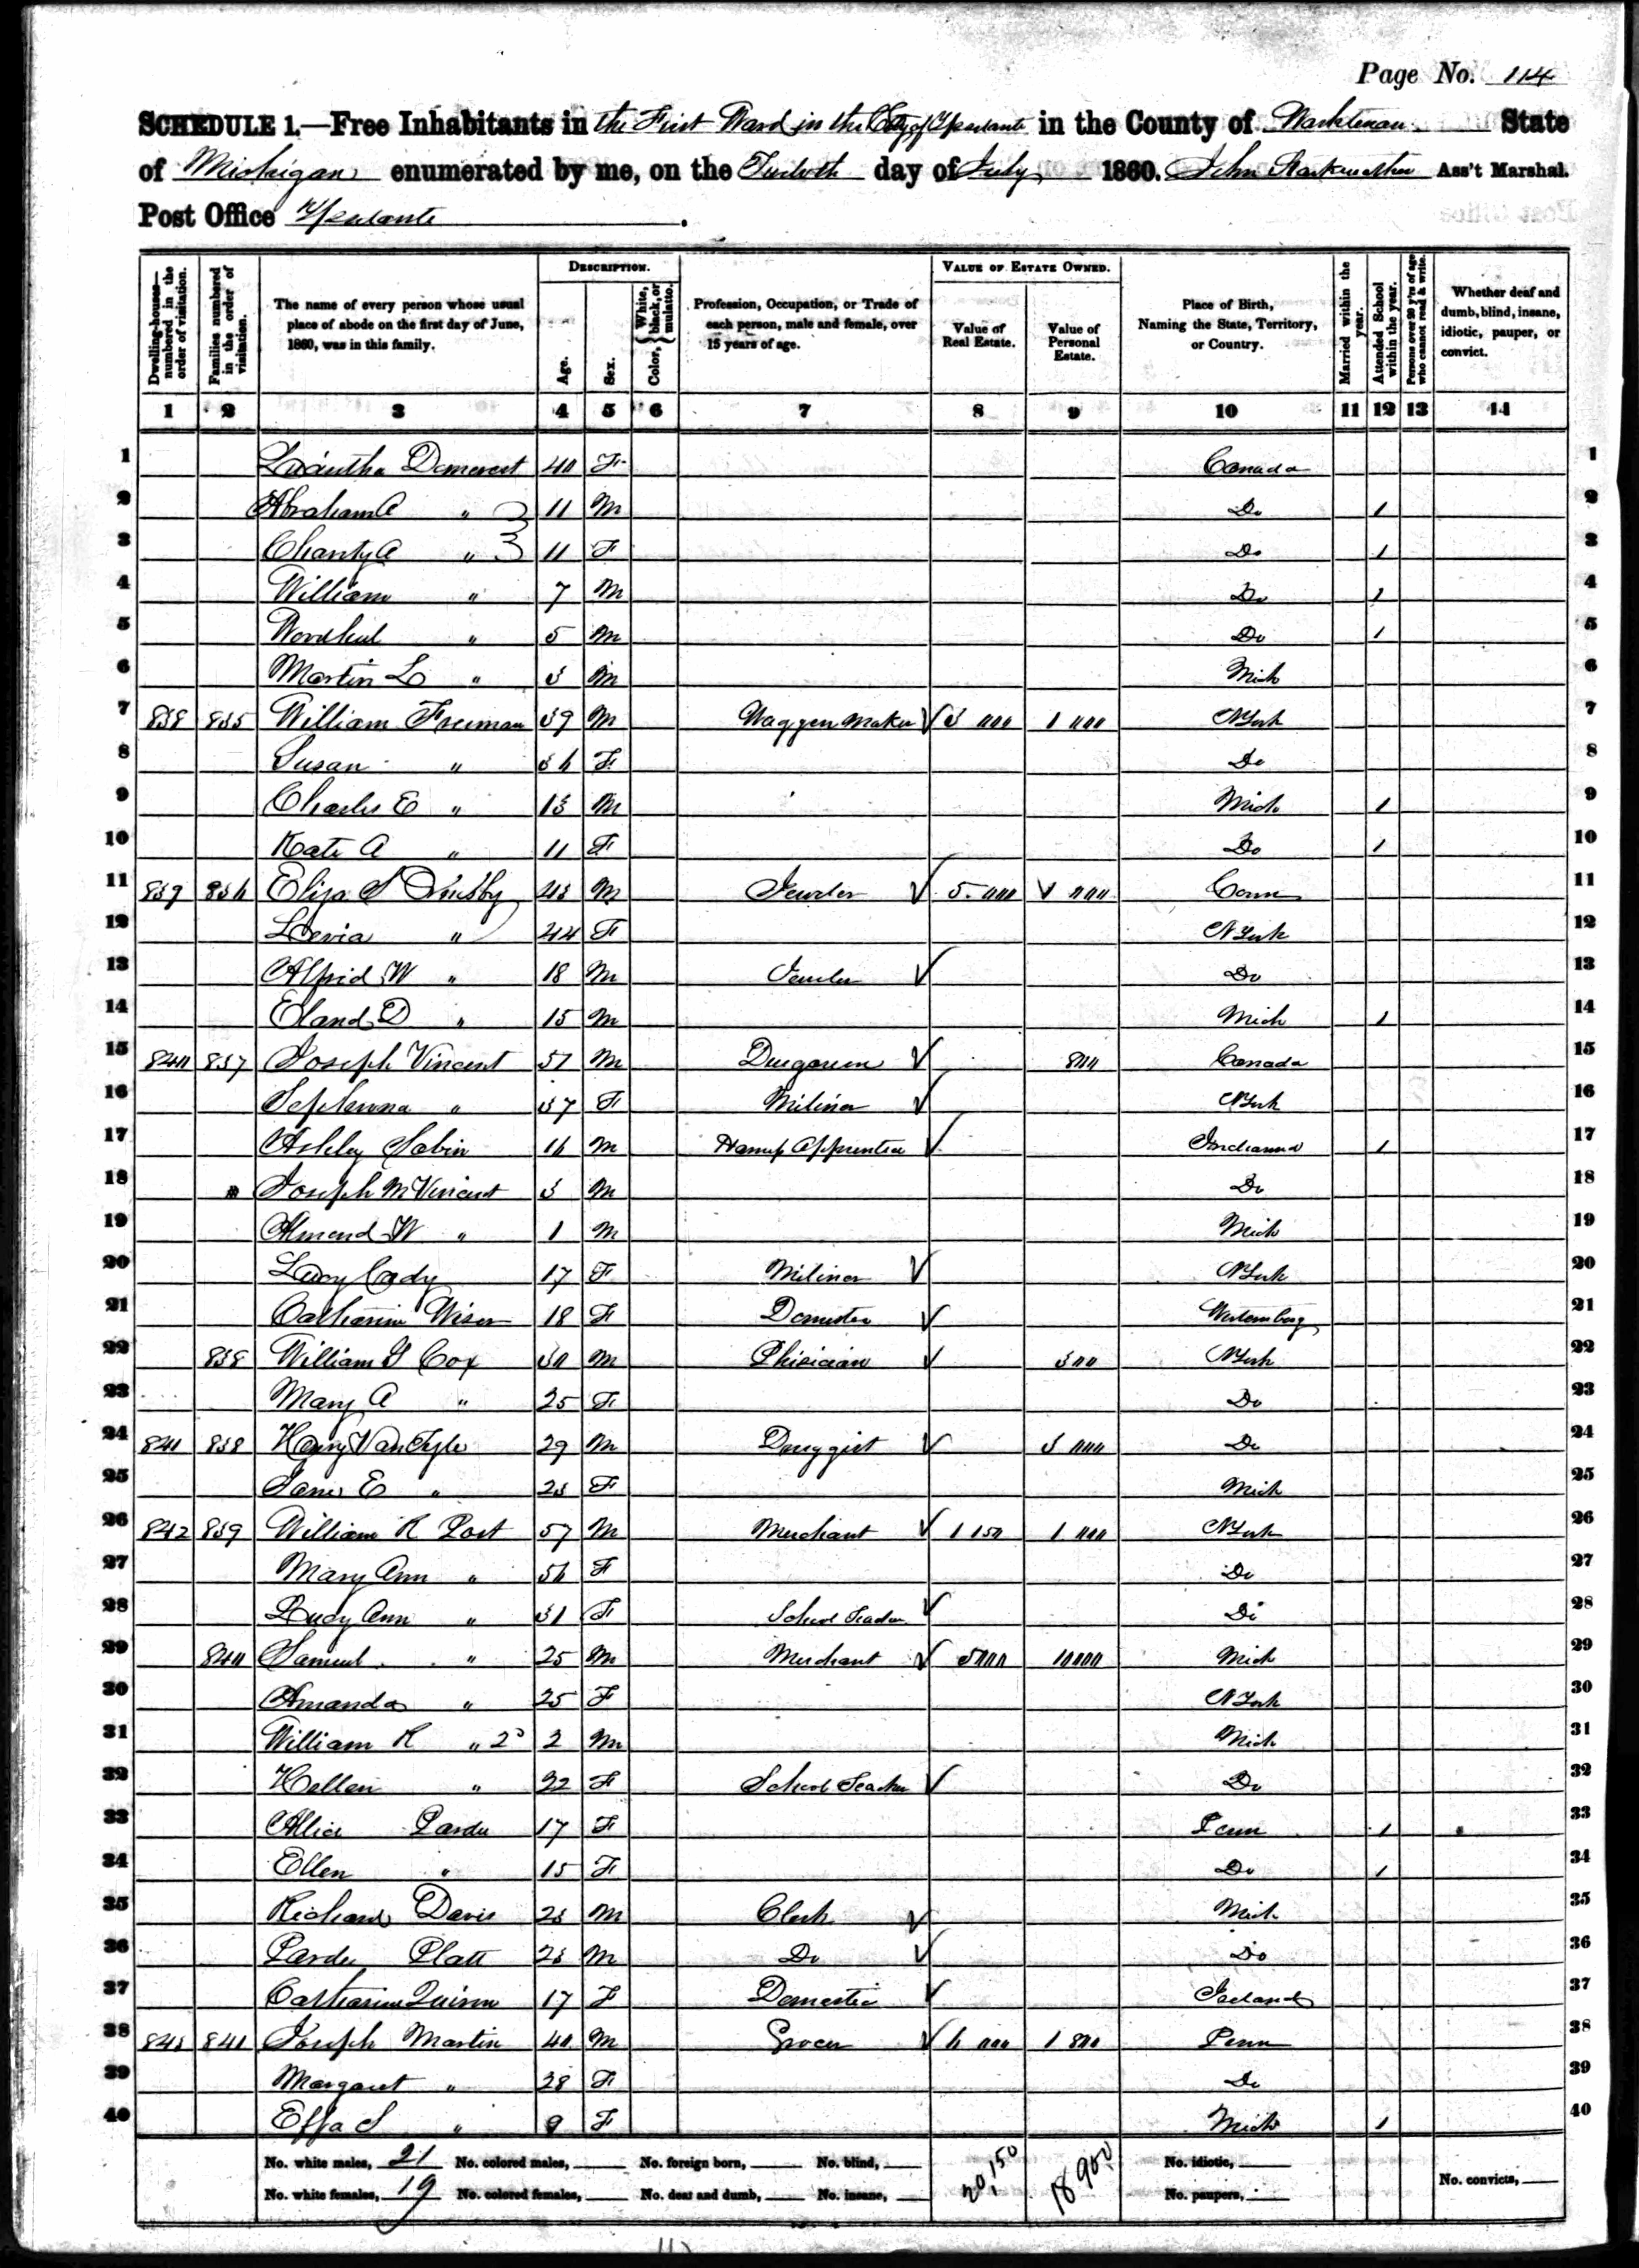 Page No. 114
SCHEDULE 1.—Free Inhabitants in the First Ward in the City of Ypsilanti in the County of Washtenaw State
of Michigan enumerated by me, on the Twelfth day of July 1860. John Starkweather Ass't Marshal.
Post Office Ypsilanti.
Dwelling-houses—numbered in the order of visitation.
Families numbered in the order of visitation.
The name of every person whose usual place of abode on the first day of June, 1860, was in this family.
DESCRIPTION.
Age.
Sex.
Color, { White, black, or mulatto.
Profession, Occupation, or Trade of each person, male and female, over 15 years of age.
VALUE OF ESTATE OWNED.
Value of Real Estate.
Value of Personal Estate.
Place of Birth, Naming the State, Territory, or Country.
Married within the year.
Attended School within the year.
Persons over 20 y'rs of age who cannot read & write.
Whether deaf and dumb, blind, insane, idiotic, pauper, or convict.
1 2 3 4 5 6 7 8 9 10 11 12 13 14
1 Demerest 40 F Canada 1
2 Abraham A " 11 M Do 1 2
3 Charity A " 11 F Do 1 3
4 William " 7 M Do 1 4
5 " 5 M Do 1 5
6 Martin L " 3 M Mich 6
7 838 835 William Freeman 39 M Waggen Maker 3 000 1 000 N York 7
8 Susan " 36 F Do 8
9 Charles E " 13 M Mich 1 9
10 Kate A " 11 F Do 1 10
11 839 836 M Jeweler 5 000 000 Conn 11
12 " 44 F N York 12
13 Alfrid W " 18 M Jeweler Do 13
14 D " 15 M Mich 1 14
15 840 837 Joseph Vincent 51 M 800 Canada 15
16 " 37 F Miliner N York 16
17 Ashley Sabin 16 M Apprentice Indianna 1 17
18 Joseph M Vincent 3 M Do 18
19 Almond W " 1 M Mich 19
20 Lucy Cady 17 F Miliner N York 20
21 Catharine Wiser 18 F Domestic Wertemburg 21
22 838 William Cox 30 M Phisician 300 N York 22
23 Mary A " 25 F Do 23
24 841 838 29 M Druggist 3 000 Do 24
25 Jane E " 23 F Mich 25
26 842 839 William R Post 57 M Merchant 1 150 1 000 N York 26
27 Mary Ann " 56 F Do 27
28 Lucy Ann " 31 F School Teacher Do 28
29 840 Samuel " 25 M Merchant 5000 10000 Mich 29
30 Amanda " 25 F N York 30
31 William R " 2d 2 M Mich 31
32 Hellen " 22 F School Teacher Do 32
33 Allice Pardee 17 F Penn 1 33
34 Ellen " 15 F Do 1 34
35 Richard Davis 23 M Clerk Mich 35
36 Pardee Platt 23 M Do Do 36
37 Catharine Quinn 17 F Domestic Ireland 37
38 843 841 Joseph Martin 40 M Grocer 6 000 1 800 Penn 38
39 Margaret " 28 F Do 39
40 Effa S " 9 F Mich 1 40
No. white males, 21 No. colored males, No. foreign born, No. blind, 20,150 18 900 No. idiotic,
No. white females, 19 No. colored females, No. deaf and dumb, No. insane, No. paupers, No. convicts,